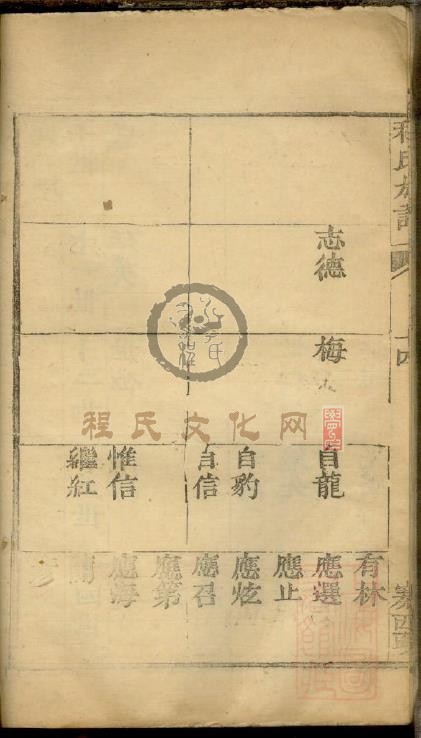 程氏族譜
十四
志德
梅
自龍
自豹
自信
惟信
繼紅
有林
應選
應止
應炫
應召
應第
應海
程氏文化网